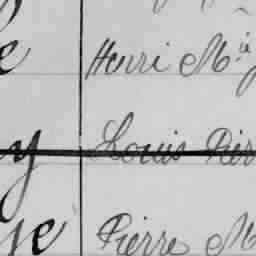 e Henri M.ie
y Louis Pier
ye Pierre M